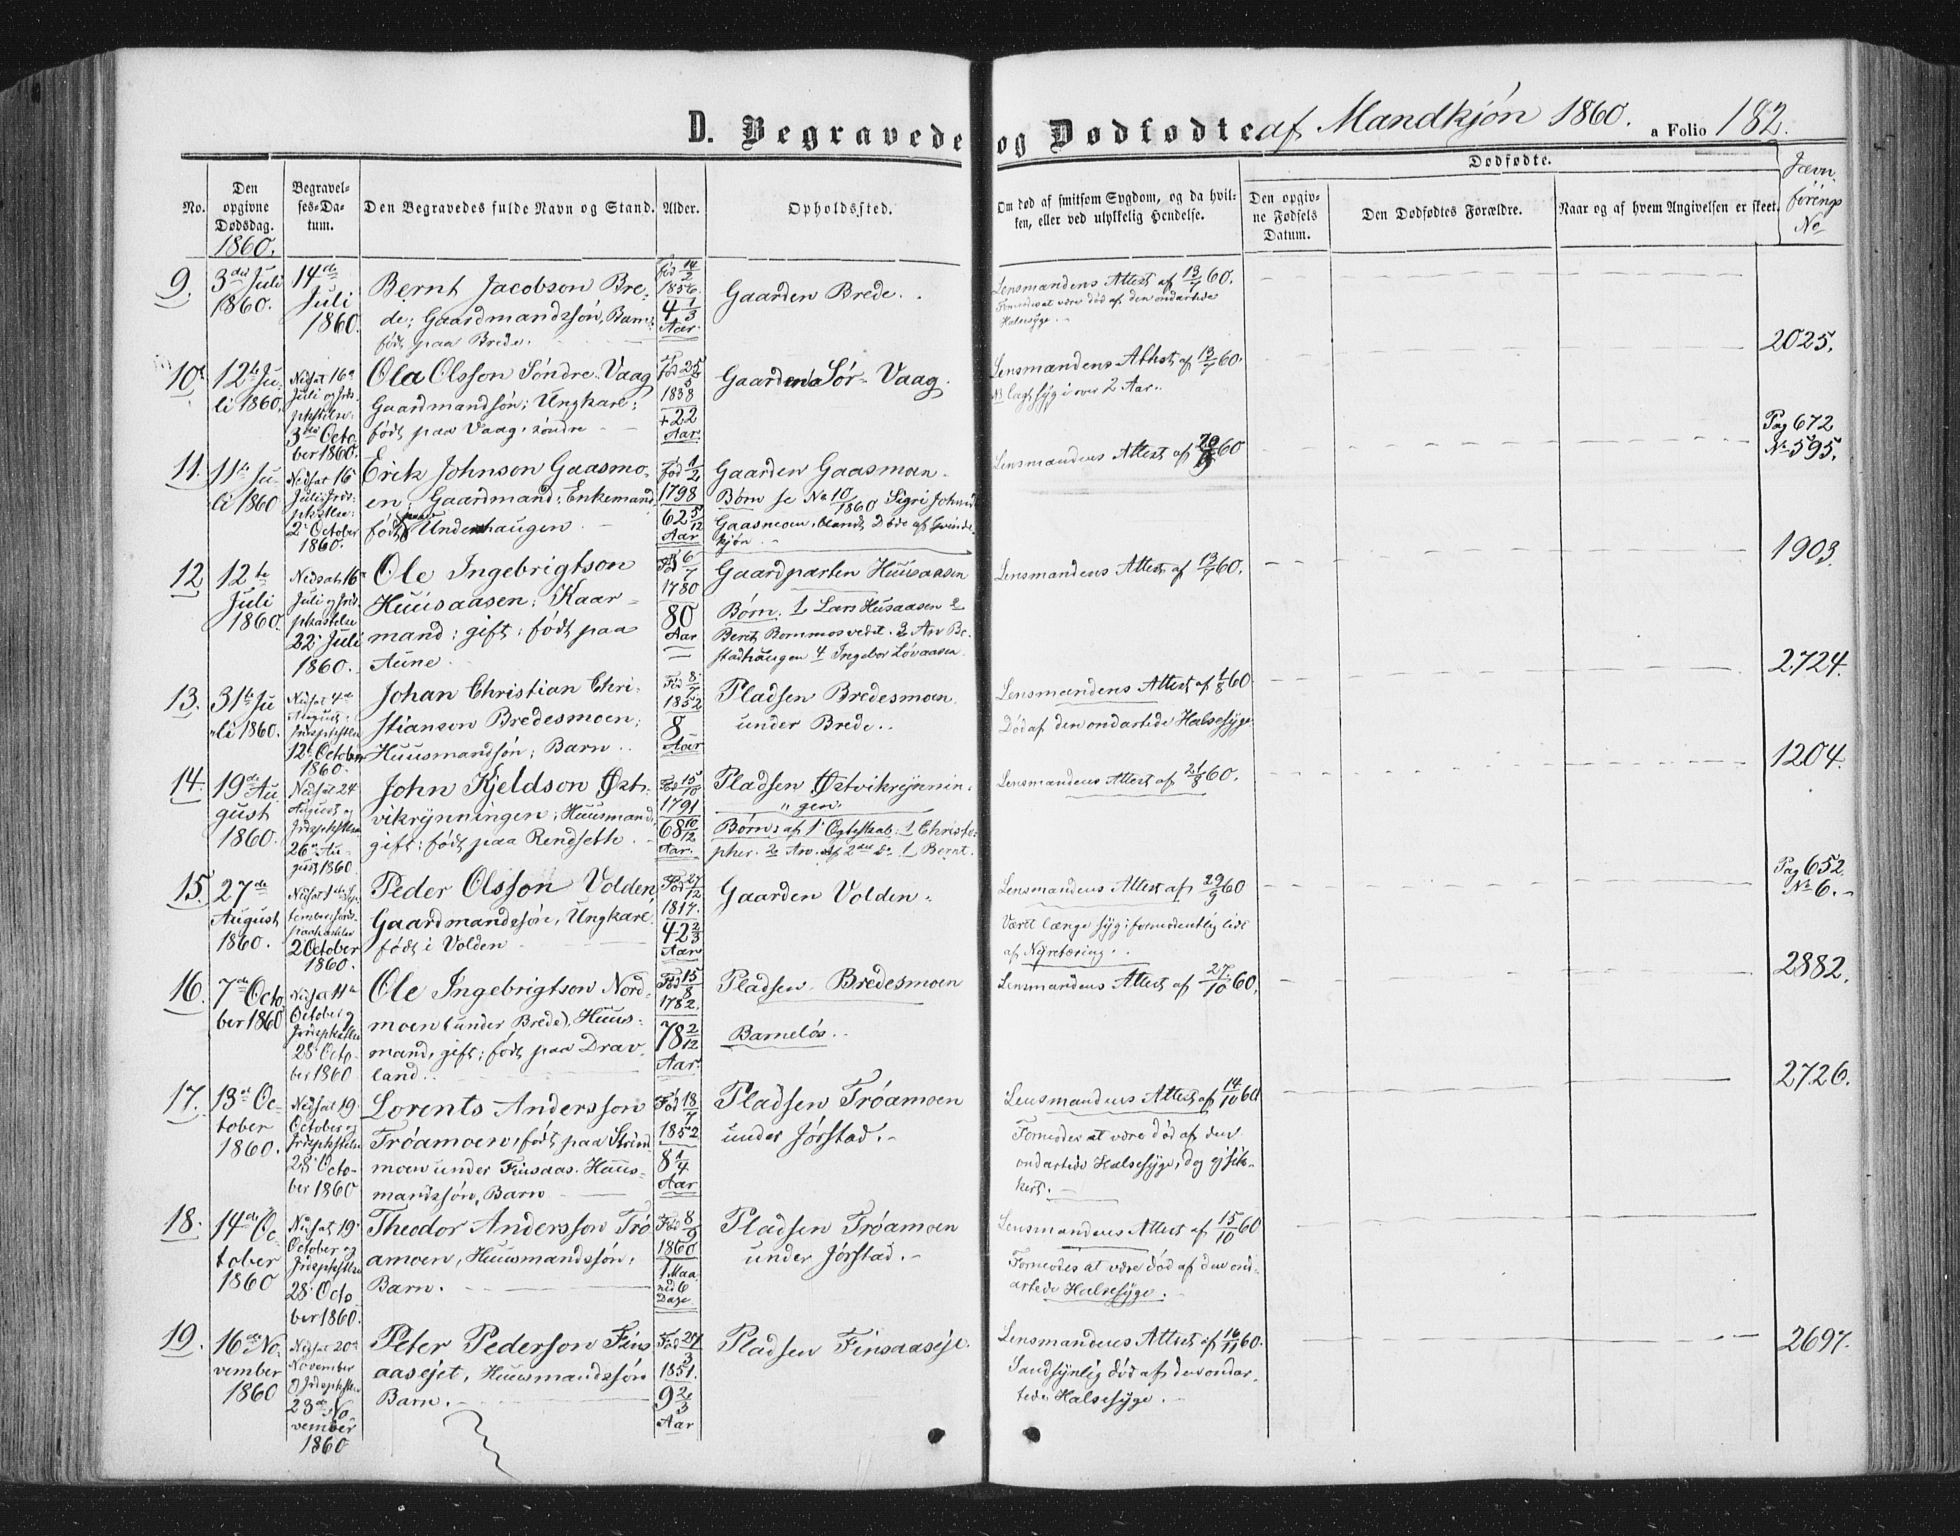 D. Begravede og Dødfødte af Mandkjøn 1860. a Folio 182.
No.
Den opgivne Dødsdag. 1860.
Begravelses-Datum.
Den Begravedes fulde Navn og Stand.
Alder.
Opholdssted.
Om død af smitsom Sygdom, og da hvilken, eller ved ulykkelig Hendelse.
Dødfødte.
Den opgivne Fødsels Datum.
Den Dødfødtes Forældre.
Naar og af hvem Angivelsen er skeet.
Jævnførings No
9.
3die Juli
1860.
14de
Juli
1860.
Bernt Jacobson Bre-
de; Gaardmandssön, Barn;
født paa Brede.
fød 14/2
1856.
4 1/3
Aar.
Gaarden Brede.
Lensmandens Attest af 13/7 60.
Formodes at være død af den ondartede
Halssyge.
2025.
10.
12te Ju-
li 1860.
Nedsat 16de
Juli og Jords-
3die Octo-
ber 1860.
Ola Olsson Söndre-Vaag
Gaardmandsön; Ungkarl;
født paa Vaag, söndre
Fød 25/5
1838
+22
Aar.
Gaarden Sør-Vaag.
Lensmandens Attest af 13/7 60.
lagt syg i over 2 Aar.
Pag 672
No 595.
11.
11te Ju-
li 1860
Nedsat 16
Juli; Jords-
2 October
1860.
Erik Johnson Gaasmo-
en, Gaardmand; Enkemand,
født paa Underhaugen
fød 1/2
1798
62 5/12
Aar
Gaarden Gaasmoen.
Børn se No 10/1860 Sigri Johnsd.
Gaasmoen, blandt Døde af Qvinde-
kjøn.
Lensmandens Attest af 60
1903.
12
12te
Juli
1860.
Nedsat 16
Juli og Jords-
paakastelse
22 Juli
1860.
Ole Ingebrigtson
Huusaasen; Kaar-
mand; gift; født paa
Aune.
Fød 6/7
1780
80
Aar
Gaardparten Huusaasen
Børn. 1 Lars Husaasen 2
Beret Rommosvedet. 3 An Be-
stadhaugen 4 Ingebor Løvaasen.
Lensmandens Attest af 13/7 60.
2724.
13.
31te Ju-
li 1860.
Nedsat 4de
August,
12 October
1860.
Johan Christian Chri-
stianson Bredesmoen;
Huusmandsön; Barn.
Fød 8/7
1852
8
Aar
Pladsen Bredesmoen
under Brede.
Lensmandens Attest af 1/8 60.
Død af den ondartede Halssyge
1204.
14.
19de Au-
gust
1860.
Nedsat 24
August og
26 Au-
gust 1860
John Kjeldson Øst-
vikrynningen; Huusmand;
gift; født paa Rendsette.
Fød 15/10
1791
68 10/12
Aar.
Pladsen Østvikrynnin-
gen.
Børn: af 1 Ogteskab: 1 Christo-
pher. 2 An. Af 2det do 1 Bernt.
Lensmandens Attest af 21/8 60.
Pag 652
No 6.
15.
27de
August
1860.
2 October
1860.
Peder Olsson Volden,
Gaardmandssön, Ungkarl,
født i Volden
Fød 27/12
1817.
42 2/3
Aar
Gaarden Volden.
Lensmandens Attest af 29/9 60
Været længe syg; formodentlig lidt
af Nyretæring.
2882.
16.
7de Octo-
ber 1860
Nedsat 11te
October og
28 Octo-
ber 1860
Ole Ingebrigtson Nord-
moen (under Brede), Huus-
mand, gift; født paa Drav-
land.
Fød 15/8
1782.
78 2/12
Aar.
Pladsen Bredesmoen
Barneløs.
Lensmandens Attest af 27/10 60.
2726.
17.
13de Oc-
tober
1860.
Nedsat 19
October og
28 Octo-
ber 1860
Lorents Andersson
Tröamoen, født paa Strind-
moen under Finsaas. Huus-
mandssön, Barn
Fød 18/7
1852
8 1/4
Aar
Pladsen Tröamoen
under Jörstad.
Lensmandens Attest af 14/10 60
Formodes at være død af den
ondartede Halssyge, dog ej sik-
kert.
18.
14de Oc-
tober
1860
Nedsat 19
October og
28 Octo-
ber 1860.
Theodor Andersson Trö-
amoen, Huusmandssön,
Barn.
Fød 8/9
1860
1 Maa-
ned 6
Dage
Pladsen Tröamoen
under Jørstad.
Lensmandens Attest af 15/10 60
Formodes at være død af den ond-
artede Halssyge.
19.
16de No-
vember
1860
Nedsat 20de
November
23de No-
vember
1860
Peter Pederson Fins-
aasejet, Huusmandssön
Barn.
Fød 24/3
1851.
9 2/3
Aar
Pladsen Finsaaseje.
Lensmandens Attest af 16/11 60.
Sandsynlig død af den ondar-
tede Halssyge.
2697.